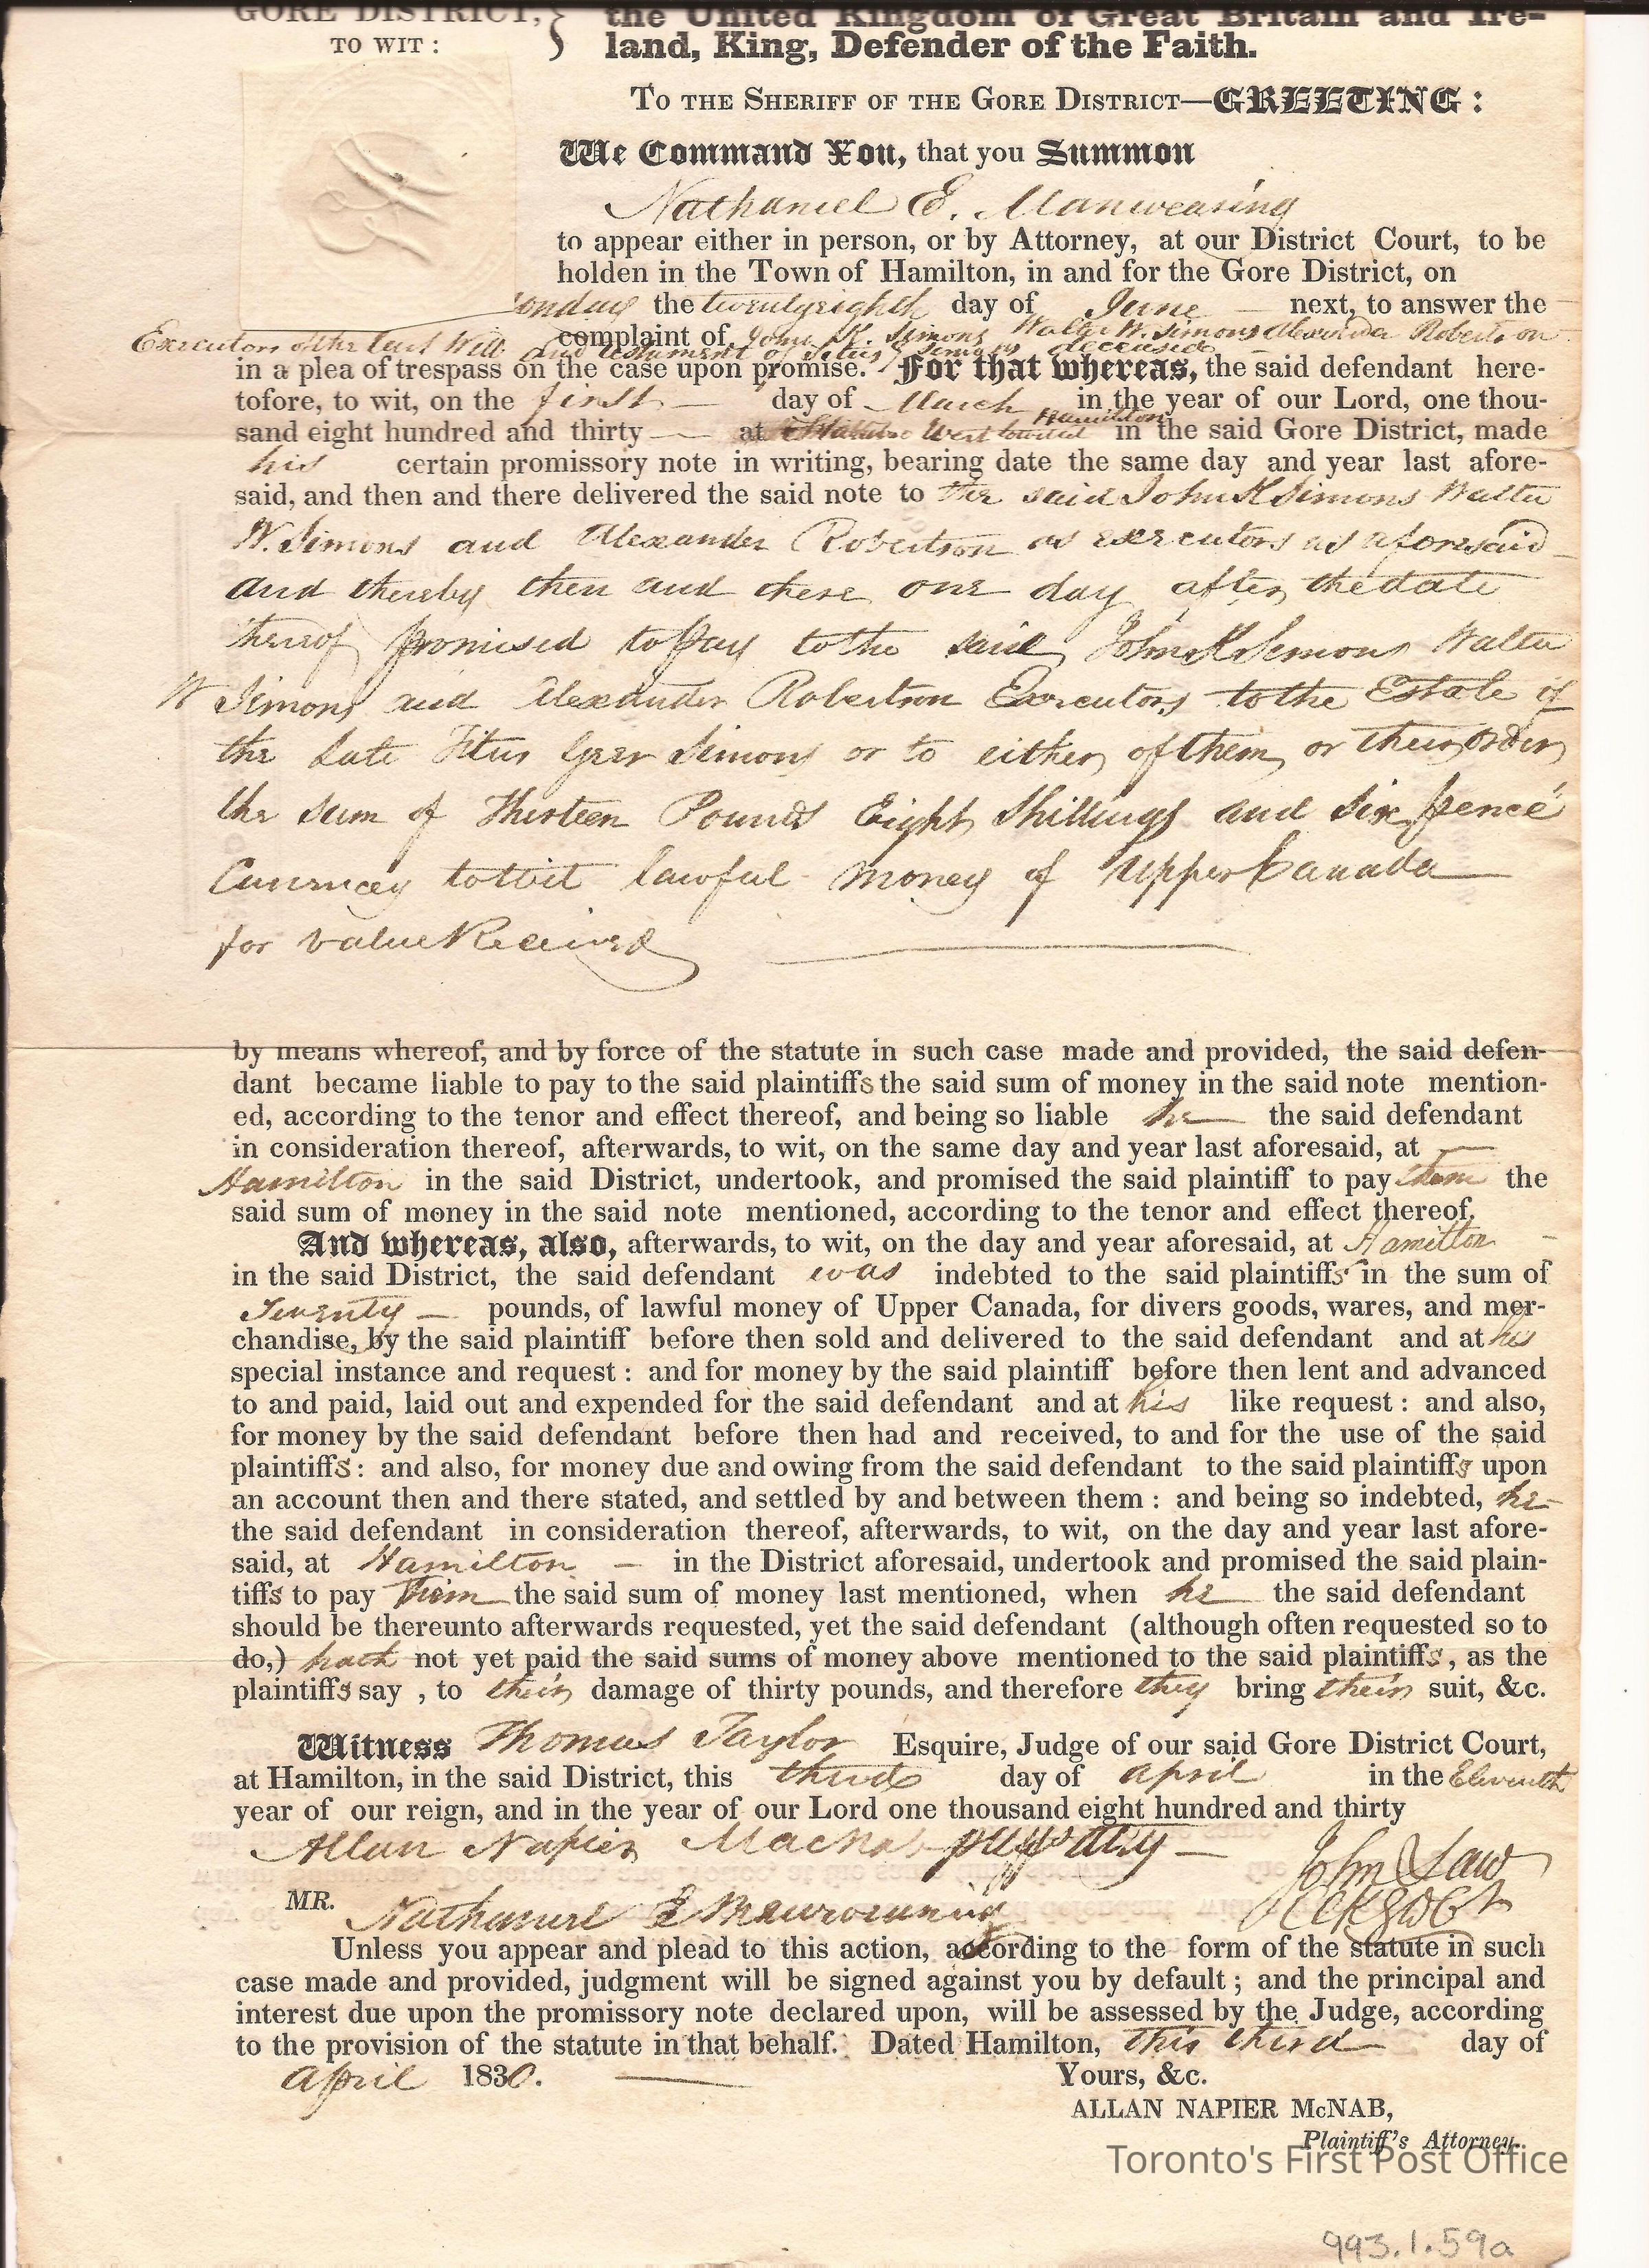 GORE DISTRICT, } the United Kingdom of Great Britain and Ire-
TO WIT : land, King, Defender of the Faith.
TO THE SHERIFF OF THE GORE DISTRICT—GREETING :
We Command You, that you Summon
Nathaniel E. Manwearing
to appear either in person, or by Attorney, at our District Court, to be
holden in the Town of Hamilton, in and for the Gore District, on
onday the twentyeighth day of June next, to answer the
complaint of John K. Simons Walter W. Simons Alexander Robertson
Executors of the last Will and testament of Titus G Simons deceased
in a plea of trespass on the case upon promise. For that whereas, the said defendant here-
tofore, to wit, on the first — day of March in the year of our Lord, one thou-
Hamilton
sand eight hundred and thirty — at in the said Gore District, made
his certain promissory note in writing, bearing date the same day and year last afore-
said, and then and there delivered the said note to the said John K Simons Walter
W. Simons and Alexander Robertson as executors as aforesaid
and thereby then and there one day after the date
thereof promised to pay to the said John K Simons Walter
W Simons and Alexander Robertson Executors to the Estate of
the Late Titus Geer Simons or to either of them or their order
the sum of Thirteen Pounds Eight Shillings and Six pence
Currency to wit lawful money of Upper Canada
for value Received
by means whereof, and by force of the statute in such case made and provided, the said defen-
dant became liable to pay to the said plaintiffs the said sum of money in the said note mention-
ed, according to the tenor and effect thereof, and being so liable he the said defendant
in consideration thereof, afterwards, to wit, on the same day and year last aforesaid, at
Hamilton in the said District, undertook, and promised the said plaintiff to pay them the
said sum of money in the said note mentioned, according to the tenor and effect thereof.
And whereas, also, afterwards, to wit, on the day and year aforesaid, at Hamilton
in the said District, the said defendant was indebted to the said plaintiffs in the sum of
Twenty — pounds, of lawful money of Upper Canada, for divers goods, wares, and mer-
chandise, by the said plaintiff before then sold and delivered to the said defendant and at his
special instance and request : and for money by the said plaintiff before then lent and advanced
to and paid, laid out and expended for the said defendant and at his like request : and also,
for money by the said defendant before then had and received, to and for the use of the said
plaintiffs : and also, for money due and owing from the said defendant to the said plaintiffs upon
an account then and there stated, and settled by and between them : and being so indebted, he
the said defendant in consideration thereof, afterwards, to wit, on the day and year last afore-
said, at Hamilton — in the District aforesaid, undertook and promised the said plain-
tiffs to pay them the said sum of money last mentioned, when he the said defendant
should be thereunto afterwards requested, yet the said defendant (although often requested so to
do,) hath not yet paid the said sums of money above mentioned to the said plaintiffs, as the
plaintiffs say , to their damage of thirty pounds, and therefore they bring their suit, &c.
Witness Thomas Taylor Esquire, Judge of our said Gore District Court,
at Hamilton, in the said District, this third day of april in the Eleventh
year of our reign, and in the year of our Lord one thousand eight hundred and thirty
Allan Napier MacNab plffs atty — John Law
MR. Nathaniel E
Unless you appear and plead to this action, according to the form of the statute in such
case made and provided, judgment will be signed against you by default ; and the principal and
interest due upon the promissory note declared upon, will be assessed by the Judge, according
to the provision of the statute in that behalf. Dated Hamilton, this third day of
april 1830. Yours, &c.
ALLAN NAPIER McNAB,
Plaintiff's Attorney.
Toronto's First Post Office
993.1.59a